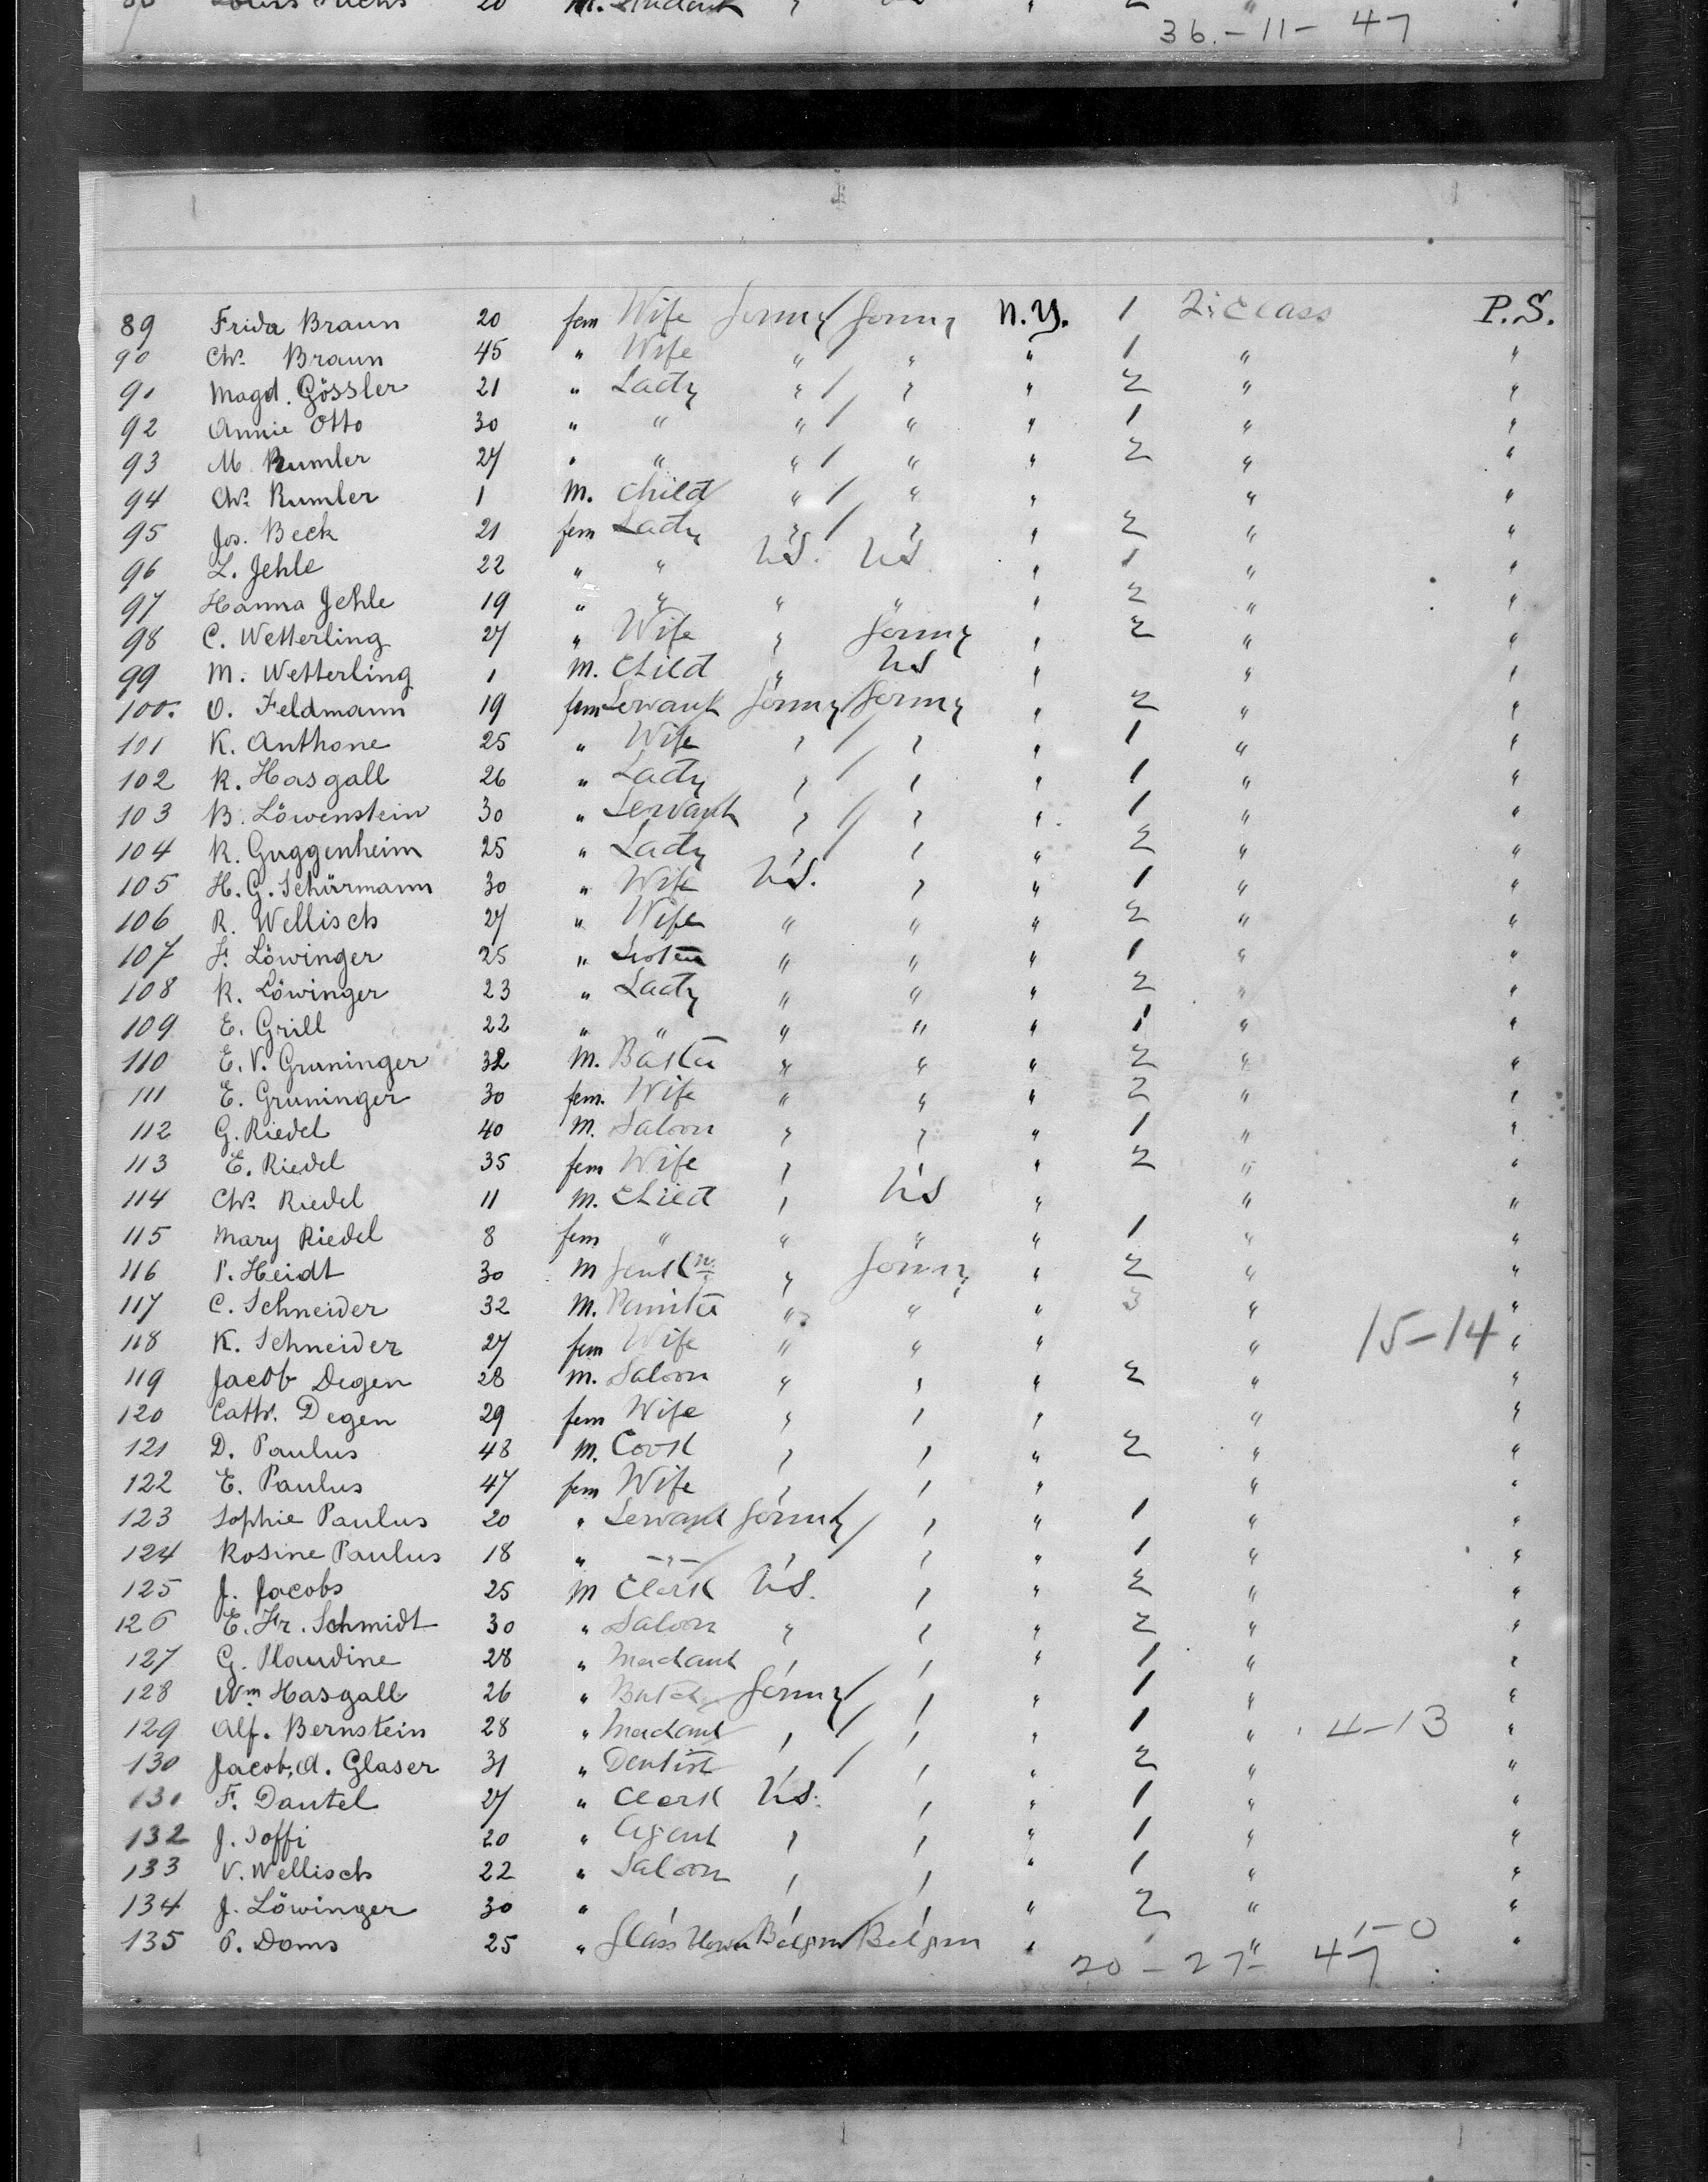 36.-11- 47
89 Frida Braun 20 fem Wife Germy / Germy N.Y. 1 2. Class P.S.
90 Chr. Braun 45 " Wife " / " " 1 " "
91 Magd. Gössler 21 " Lady " / " " 2 " "
92 Annie Otto 30 " " " / " " 1 " "
93 M. Rumler 27 " " " / " " 2 " "
94 Chr. Rumler 1 M. Child " / " " " "
95 Jos. Beck 21 fem Lady " / " " 2 " "
96 L. Jehle 22 " " US. US. " 1 " "
97 Hanna Jehle 19 " " " " " 2 " "
98 C. Wetterling 27 " Wife " Germy " 2 " "
99 M. Wetterling 1 M. Child " US " " "
100. O. Feldmann 19 fem Servant Germy / Germy " 2 " "
101 K. Anthone 25 " Wife " / " " 1 " "
102 R. Hasgall 26 " Lady " / " " 1 " "
103 B. Löwenstein 30 " Servant " / " " 1 " "
104 R. Guggenheim 25 " Lady " / " " 2 " "
105 H. G. Schürmann 30 " Wife US. " " 1 " "
106 R. Wellisch 27 " Wife " " " 2 " "
107 F. Löwinger 25 " " " " 1 " "
108 R. Löwinger 23 " Lady " " " 2 " "
109 E. Grill 22 " " " " " 1 " "
110 E. V. Gruninger 32 M. " " " 2 " "
111 E. Gruninger 30 fem. Wife " " " 2 " "
112 G. Riedel 40 M. Saloon " " " 1 " "
113 E. Riedel 35 fem Wife " " " 2 " "
114 Chr. Riedel 11 M. Child " US " " "
115 Mary Riedel 8 fem " " " " 1 " "
116 P. Heidt 30 M Gentln. " Germy " 2 " "
117 C. Schneider 32 M. " " " 3 " "
118 K. Schneider 27 fem Wife " " " " 15-14 "
119 Jacob Degen 28 M. Saloon " " " 2 " "
120 Cath. Degen 29 fem Wife " " " " "
121 D. Paulus 48 M. Cook " " " 2 " "
122 E. Paulus 47 fem Wife " " " " "
123 Sophie Paulus 20 " Servant Germy / " " 1 " "
124 Rosine Paulus 18 " -"- / " " " 1 " "
125 J. Jacobs 25 M Clerk US. " " 2 " "
126 E. Fr. Schmidt 30 " Saloon " " " 2 " "
127 G. Plaudine 28 " Merchant " " " 1 " "
128 Wm Hasgall 26 " Butcher Germy / " " 1 " "
129 Alf. Bernstein 28 " Merchant " / " " 1 " 4-13 "
130 Jacob, A. Glaser 31 " Dentist " / " " 2 " "
131 F. Dautel 27 " Clerk US. " " 1 " "
132 J. Joffi 20 " Agent " " " 1 " "
133 V. Wellisch 22 " Saloon " " " 1 " "
134 J. Löwinger 30 " " " " " 2 " "
135 P. Doms 25 " Glass Belgium / Belgium " " 1-0 "
20-27- 47